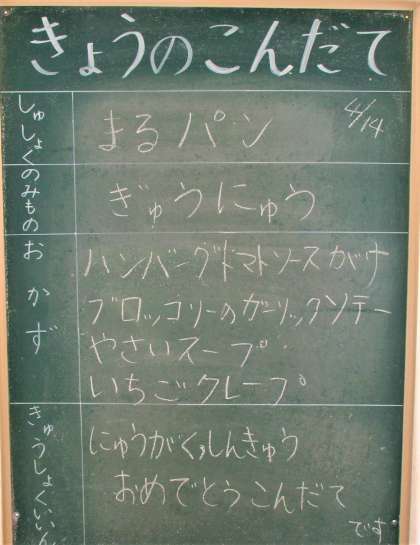 きょうのこんだて
4/14
しゅしょく
まるパン
のみもの
ぎゅうにゅう
おかず
ハンバーグトマトソースがけ
ブロッコリーのガーリックソテー
やさいスープ
いちごクレープ
きゅうしょくいいん
にゅうがく,しんきゅう
おめでとうこんだて
です